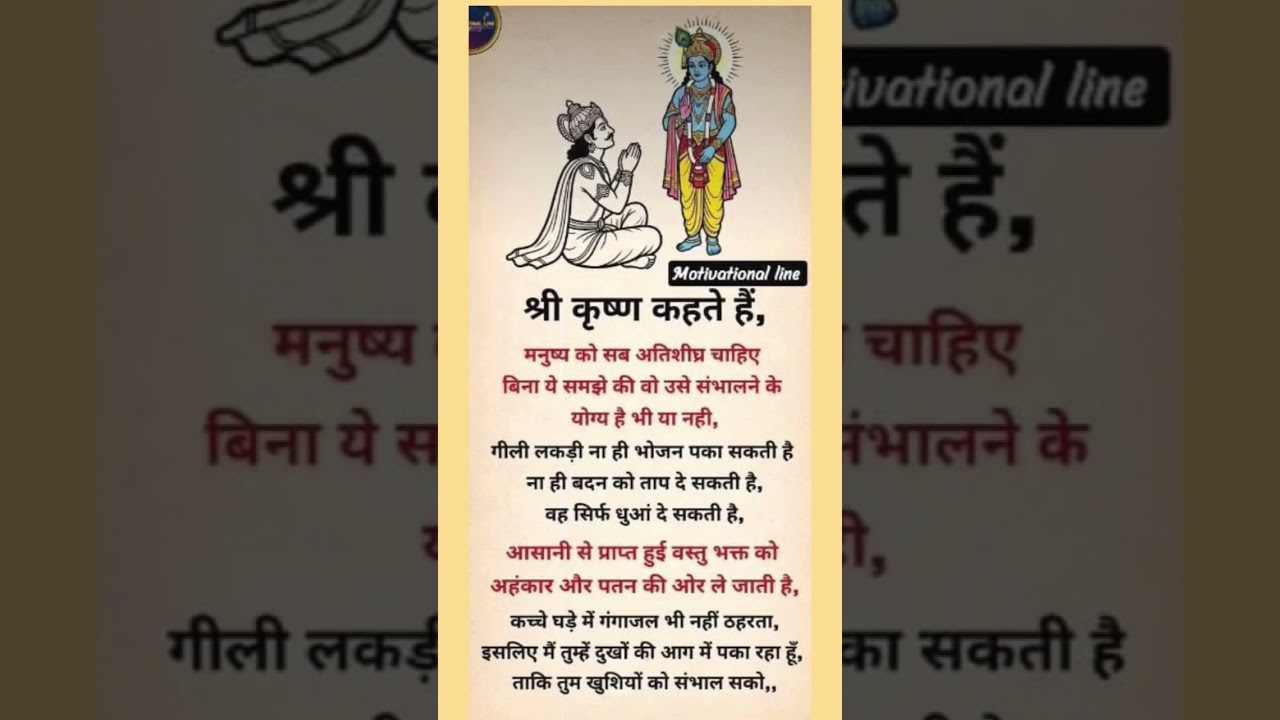 Motivational line
श्री कृष्ण कहते हैं,
मनुष्य को सब अतिशीघ्र चाहिए
बिना ये समझे की वो उसे संभालने के
योग्य है भी या नही,
गीली लकड़ी ना ही भोजन पका सकती है
ना ही बदन को ताप दे सकती है,
वह सिर्फ धुआं दे सकती है,
आसानी से प्राप्त हुई वस्तु भक्त को
अहंकार और पतन की ओर ले जाती है,
कच्चे घड़े में गंगाजल भी नहीं ठहरता,
इसलिए मैं तुम्हें दुखों की आग में पका रहा हूँ,
ताकि तुम खुशियों को संभाल सको,,